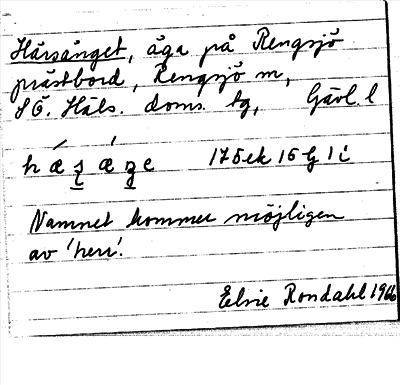 Härsänget, äga på Rengsjö
prästbord, Rengsjö sn,
SÖ. Häls. doms. tg, Gävl. l
175ek 15 G 1 i
Namnet kommer möjligen
av 'herr'.
Elsie Rondahl 1966